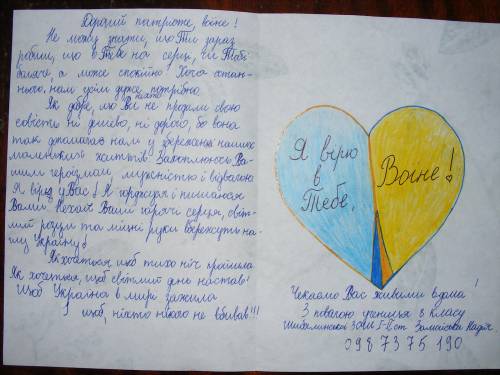 Дорогий патріоте, воїне!
Не можу знати, що Ти зараз
робиш, що в Тебе на серці, чи Тобі
боляче, а може спокійно? Хоча остан-
нього нам усім дуже потрібно.
Як добре, що Ви ніколи не продали свою
совість ні дешево, ні дорого, бо вона
так допомагає нам у збереженні наших
маленьких життів. Захоплююсь Ва-
шим героїзмом, мужністю і відвагою
Я вірю у Вас! Я горджуся і пишаюся
Вами. Нехай Ваші гарячі серця, світ-
лий розум та міцні руки вбережуть на-
шу Україну!
Як хочеться, щоб тихо ніч
Як хочеться, щоб світлий день настав!
Щоб Україна в мирі зажила
І щоб, ніхто нікого не вбивав!!!
Я вірю
в
Тебе,
Воїне!
Чекаємо Вас живими вдома!
З повагою учениця 8 класу
ЗОШ І-ІІ ст. Надія.
0987375190